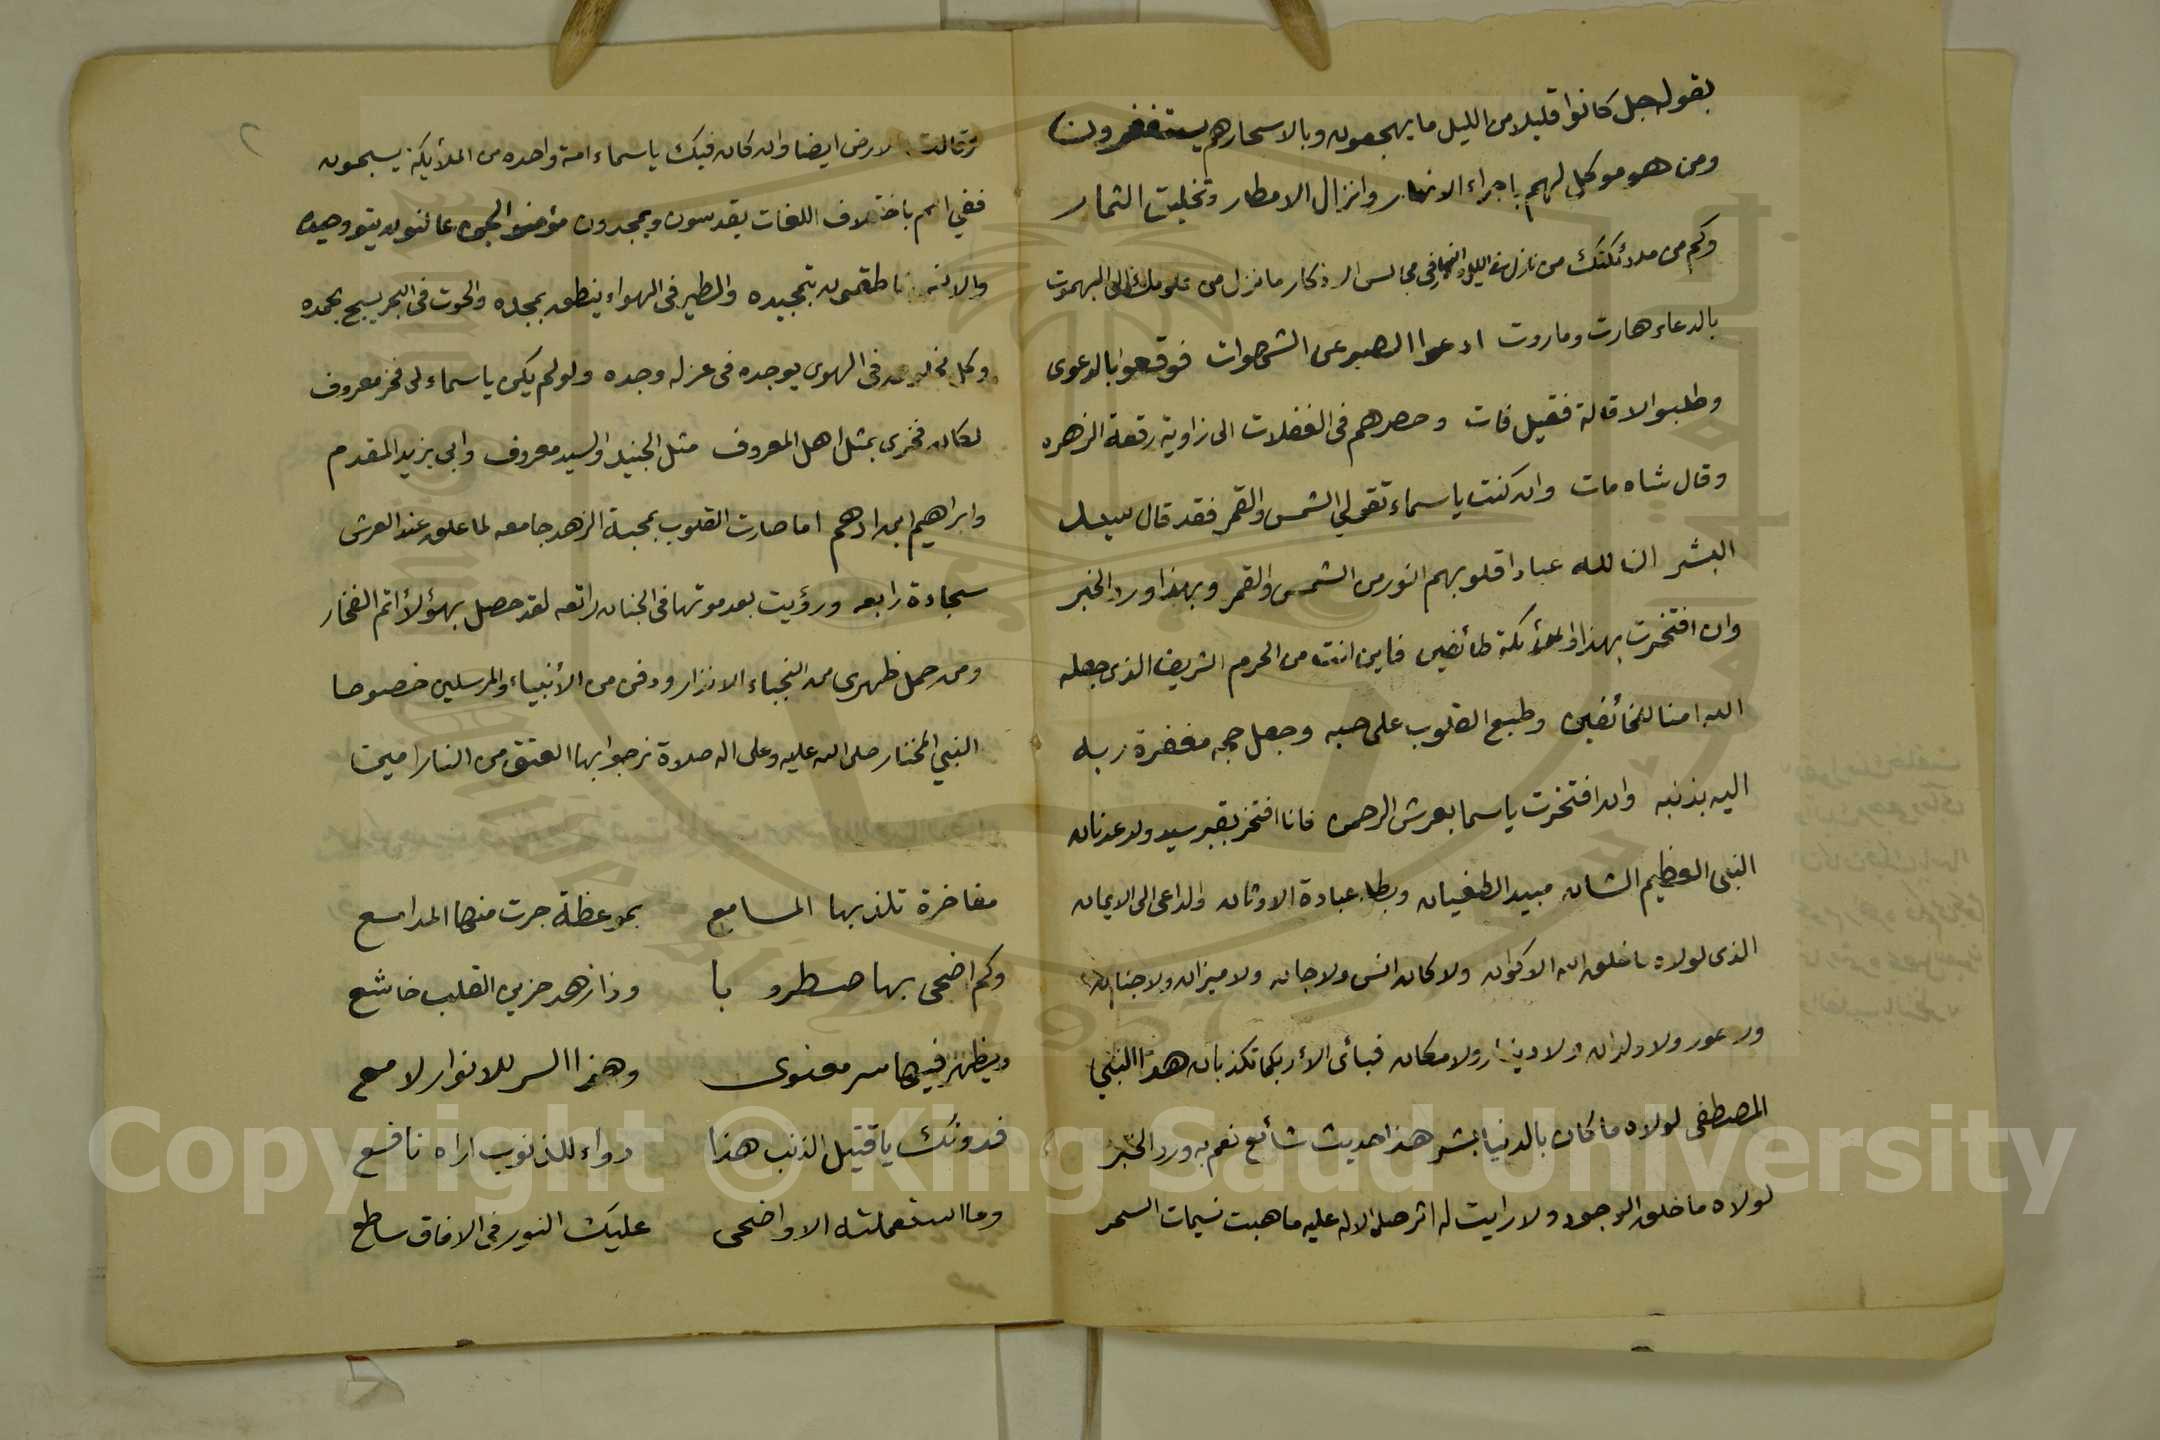 بقول جل كانوا قليلا من الليل ما يهجعون وبالاسحار هم يستغفرون
ومن هو موكل لهم باجراء الانهار وانزال الامطار وتخليت الثمار
وكم من ملائكتك من نازل في الليل والنهار في مجالس الاذكار ما نزل من علومك الى البهموت
بالدعاء هارت وماروت ادعوا الصبر عن الشهوات فوقعوا بالدعوى
وطلبوا الاقالة فقيل فات وحصرهم في الغفلات الى زاوية رقعة الزهره
وقال شاه مات وان كنت يا سماء تقولي الشمس والقمر فقد قال سيد
البشر ان لله عبادا قلوبهم انور من الشمس والقمر وبهذا ورد الخبر
وان افتخرت بهذا والملأئكة طائفين فاين انت من الحرم الشريف الذي جعله
الله امنا للخائفين وطبع القلوب على حبه وجعل حجه مغفرة ربه
اليه بذنبه وان افتخرت يا سما بعرش الرحمن فانا افتخر بقبر سيد ولد عدنان
النبي العظيم الشان مبيد الطغيان وبطل عبادة الاوثان والداعى الى الايمان
الذى لولاه ما خلق الله الاكوان ولا كان انس ولا جان ولا ميزان ولا جنان
ولا حور ولا ولدان ولا دينار ولا مكان فبأى الأ ربكما تكذبان هذا النبي
المصطفى لولاه ما كان بالدنيا بشر هذا حديث شائع نعم به ورد الخبر
لولاه ما خلق الوجود ولا رايت له اثر صلى الاله عليه ما هبت نسيمات السحر
وقالت الارض ايضا وان كان فيك يا سماء امة واحده من الملأيكة يسبحون
ففي امم باختلاف اللغات يقدسون ويمجدون
ناطقون بتمجيده والطير في الهواء ينطق بمجده والحوت في البحر يسبح بحمده
وكل في الهوى يوجده في عزله وحده ولو لم يكن يا سماء لى فخر معروف
لكان فخرى بمثل اهل المعروف مثل الجنيد والسيد معروف وابى يزيد المقدم
وابراهيم ابن ادهم اما صارت القلوب بمحبة الزهد جامعه لما علق عند العرش
سجادة رابعه ورؤيت بعد موتها في الجنان راتعه لقد حصل بهؤلأ اتم الفخار
ومن حمل ظهرى من النجباء الانزار ودفن من الأنبياء والمرسلين خصوصا
النبي المختار صلى الله عليه وعلى اله صلاة نرجوا بها العتق من النار امين
مفاخرة تلذ بها المسامع بموعظة جرت منها المدامع
وكم اضحى بها صطرو با وذا زهد حزين القلب خاشع
ويظهر فيها سر معنوى وهذا السر للانوار لامع
فدونك يا قتيل الذنب هذا دواء للذنوب اراه نافع
وما استعملته الا واضحى عليك النور في الافاق ساطع
Copyright © King Saud University